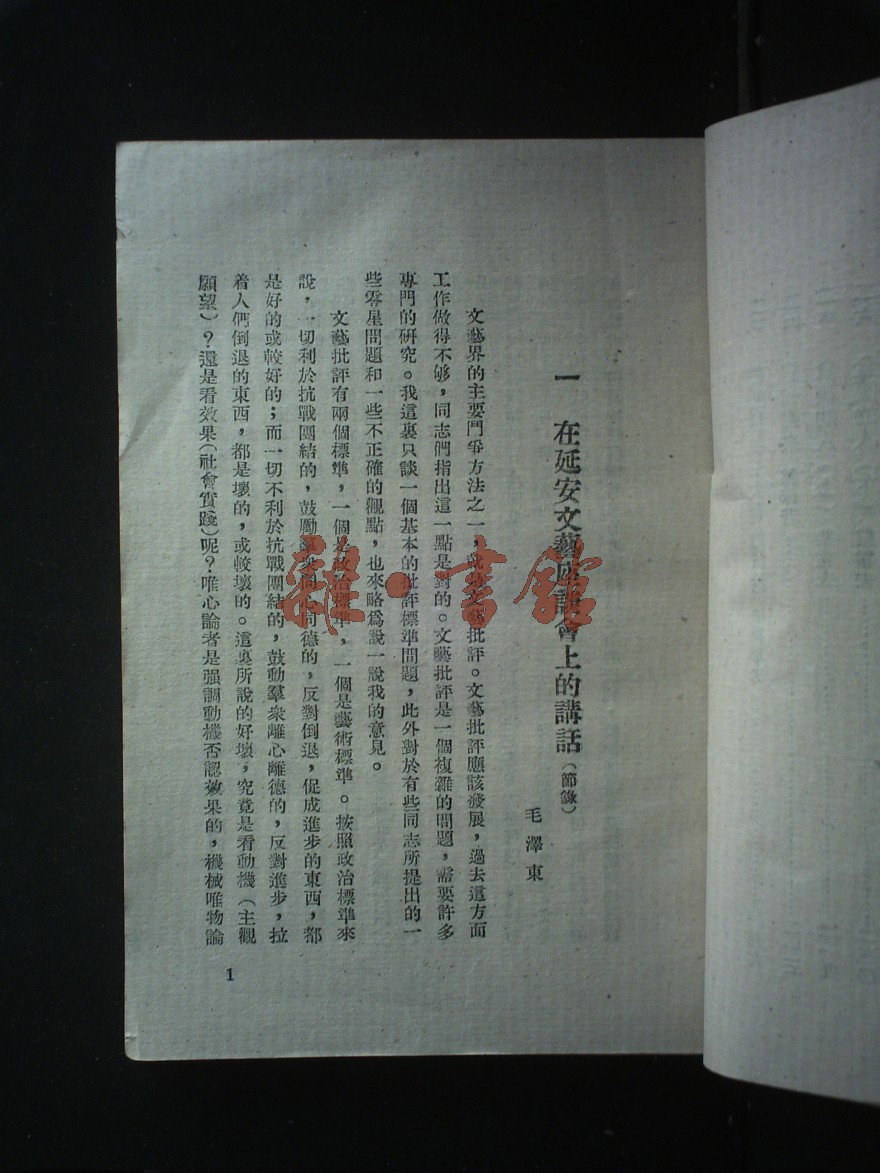 一 在延安文藝座談會上的講話(節錄)
毛澤東
文藝界的主要鬥爭方法之一,就是文藝批評。文藝批評應該發展,過去這方面
工作做得不够,同志們指出這一點是對的。文藝批評是一個複雜的問題,需要許多
專門的研究。我這裏只談一個基本的批評標準問題,此外對於有些同志所提出的一
些零星問題和一些不正確的觀點,也來略爲說一說我的意見。
文藝批評有兩個標準,一個是政治標準,一個是藝術標準。按照政治標準來
說,一切利於抗戰團結的,鼓勵羣衆同心同德的,反對倒退,促成進步的東西,都
是好的或較好的;而一切不利於抗戰團結的,鼓動羣衆離心離德的,反對進步,拉
着人們倒退的東西,都是壞的,或較壞的。這裏所說的好壞,究竟是看動機(主觀
願望)?還是看效果(社會實踐)呢?唯心論者是强調動機否認效果的,機械唯物論
1
雜·書館